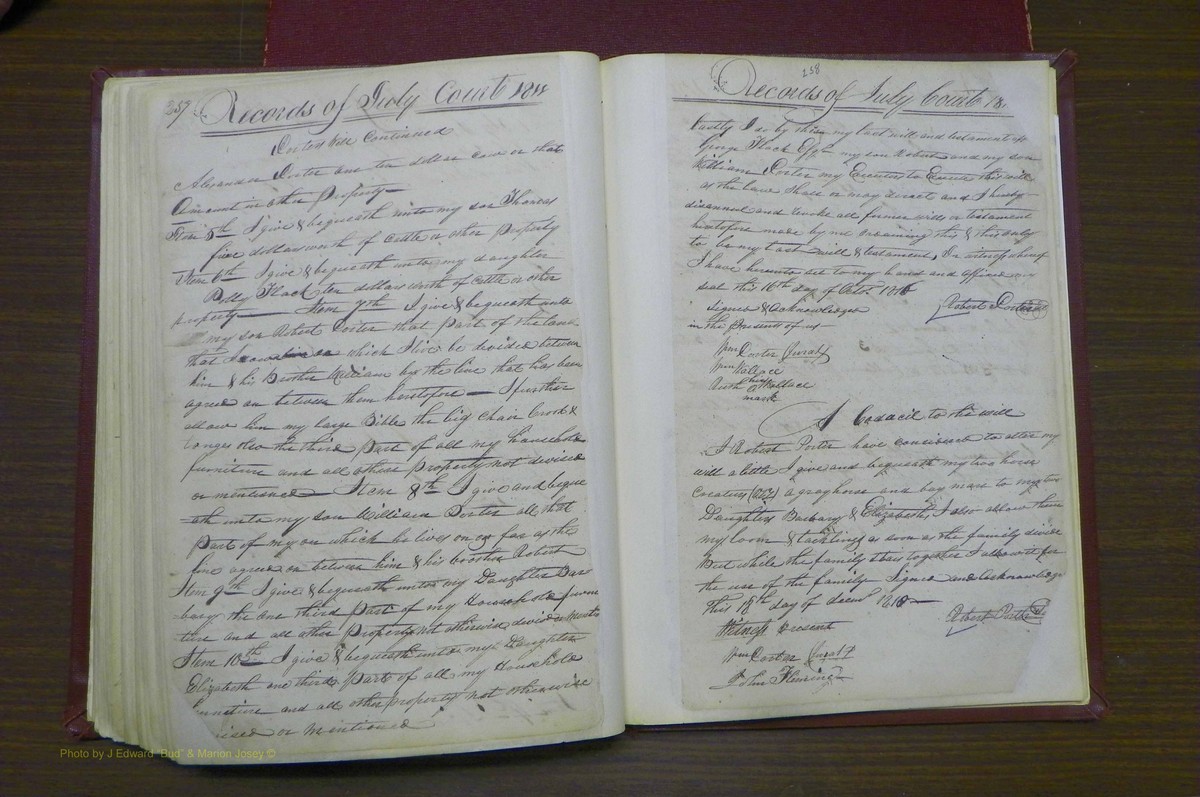 257
Records of July Court 181
Porters Will Continued
Alexander Porter one ten dollar cow or that
Amount in other Property
Item 5th I give & bequeath unto my son Thomas
five dollars worth of Cattle or other Property
Item 6th I give & bequeath unto my daughter
Polly Flack ten dollars worth of Cattle or other
property Item 7th I give & bequeath unto
my son Robert Porter that part of the land
that I now live on which I live be divided between
him & his Brother William by the line that has been
agreed on between them heretofore I further
allow him my large Bible the big Chair Crook &
tonges also the third part of all my household
furniture and all other property not divised
or mentioned Item 8th I give and beque
ath unto my son William Porter all that
part of my on which he lives on as far as the
line agreed on between him & his brother Robert
Item 9th I give & bequeath unto my Daughter Bar
bary the one third part of my Household furni
ture and all other Property not otherwise divided or ment
Item 10th I give & bequeath unto my Daughter
Elizabeth one third parts of all my Household
furniture and all other property not otherwise
ised or mentioned
258
Records of July Court 18
Lastly I do by these my last will and testament
George Flack my son Robert and my son
William Porter my Executors to Execute this will
as the law Shall or may direct and I hereby
disannul and revoke all former wills or testament
heretofore made by me confirming this & this only
to be my Last will & testament, In witness whereof
I have hereunto set to my hand and affixed my
seal this 16th day of Octr. 1816
Signed & Acknowledged Robert Porter
in the Presents of us
Wm Porter (Jurat)
Wm Wallace
his Wallace
mark
A Codacil to the will
I Robert Porter have concieved to alter my
will a little I give and bequeath my two horse
Creatures (viz) a gray horse and bay mare to my two
Daughters Barbary & Elizabeth, I also allow them
my loom & tackling as soon as the family divide
But while the family stay together I allow it for
the use of the family Signed and Acknowledge
this 18th day of decem 1816
Witness present Robert Porter
Wm Porter (Jurat)
John Fleming
Photo by J Edward "Bud" & Marion Josey ©